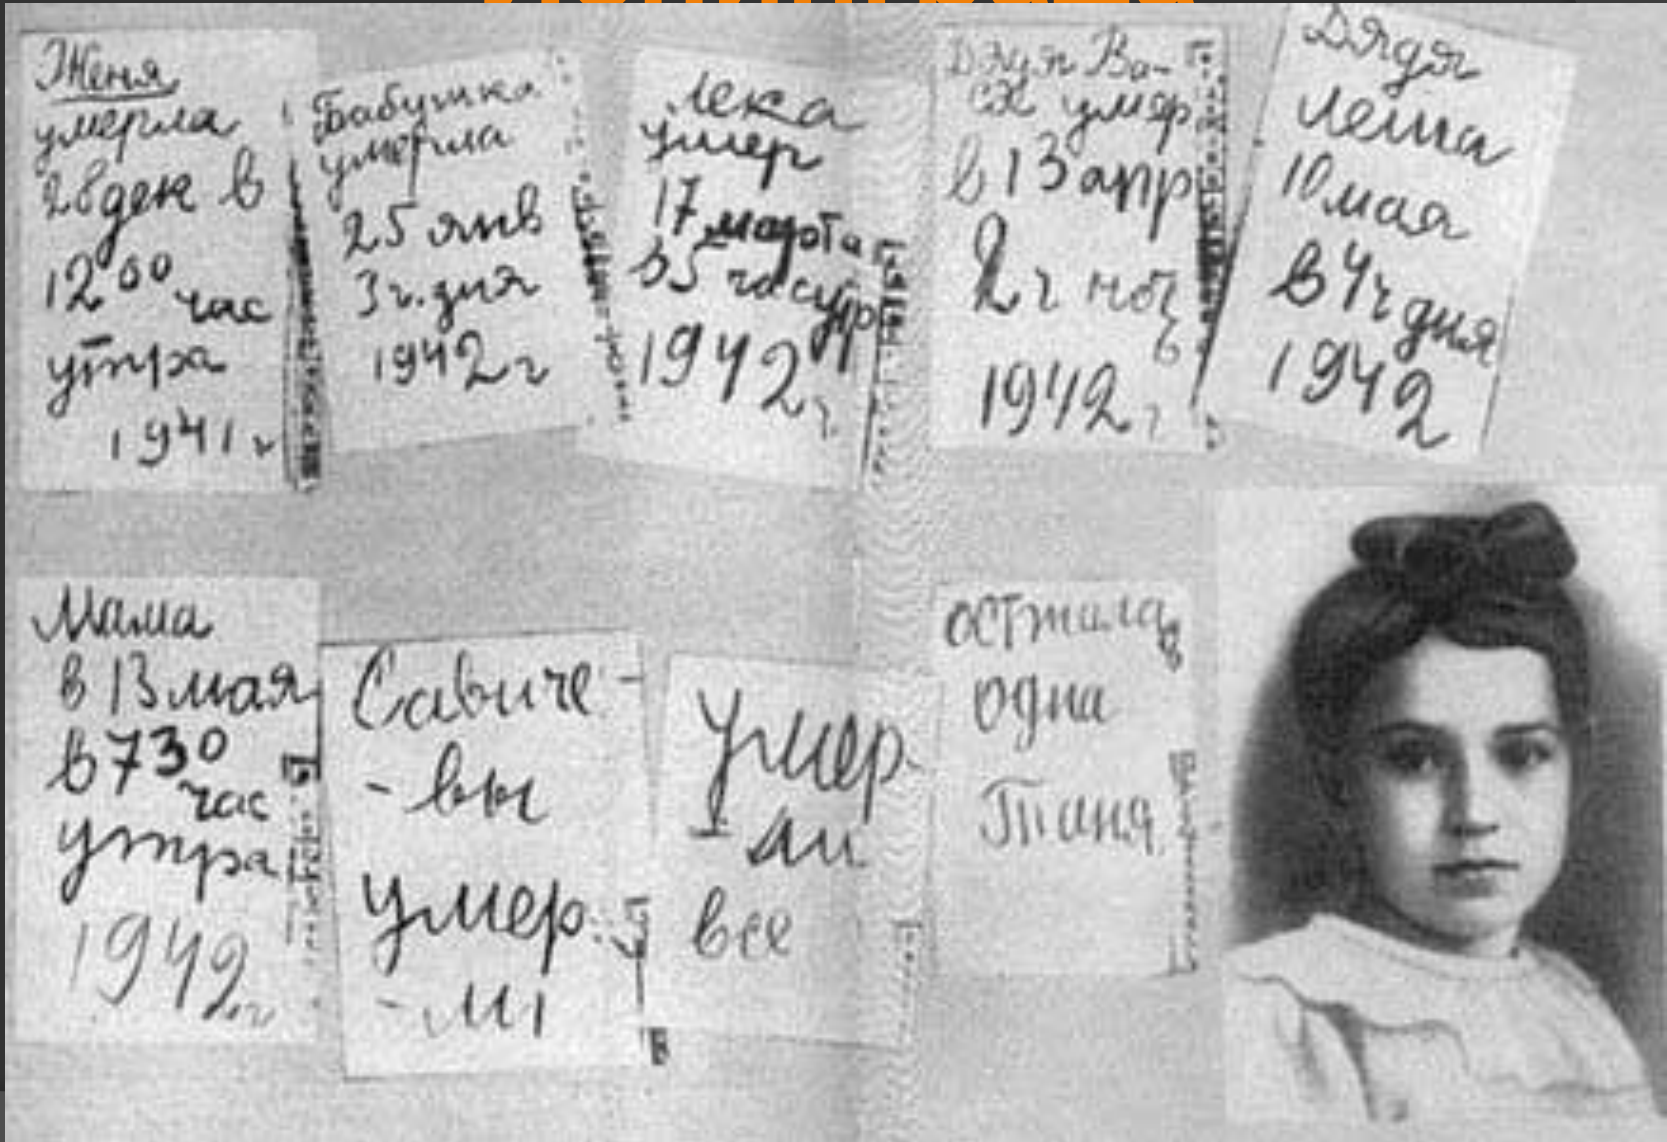 Женя
умерла
28 дек в
12 00 час
утра
1941 г
Бабушка
умерла
25 янв
3 ч. дня
1942 г
Лека
умер
17 марта
в 5 часутр
1942 г.
Дядя Ва-
ся умер
в 13 апр
2 ч ноч
ь
1942 г
Дядя
Леша
10 мая
в 4 ч дня
1942
Мама
в 13 мая
в 7 30
час
утра
1942 г
Савиче-
-вы
умер
-ли
Умер
-ли
все
осталась
одна
Таня